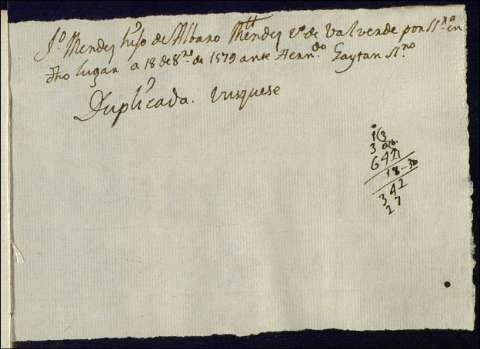 Jº Mendez hijo de Albaro Mendez vº de Valverde por ssnª en
dho lugar a 18 de 8re de 1579 ante Herndo Gaytan ssno
Duplicada. Vusquese
642
18
342
27